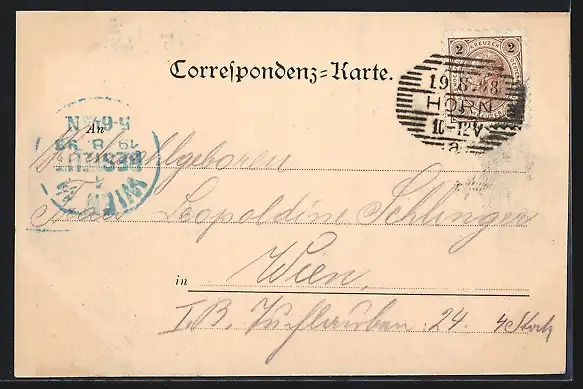 Correspondenz-Karte.
2 KREUZER 2
19.8.98
HORN
10-12V
a
5-6½N
19 8 98
BESTELLT
WIEN
An
Wohlgeboren
Frau Leopoldine Schlinger
in Wien,
I. B. Tuchlauben 24. 4 Stock